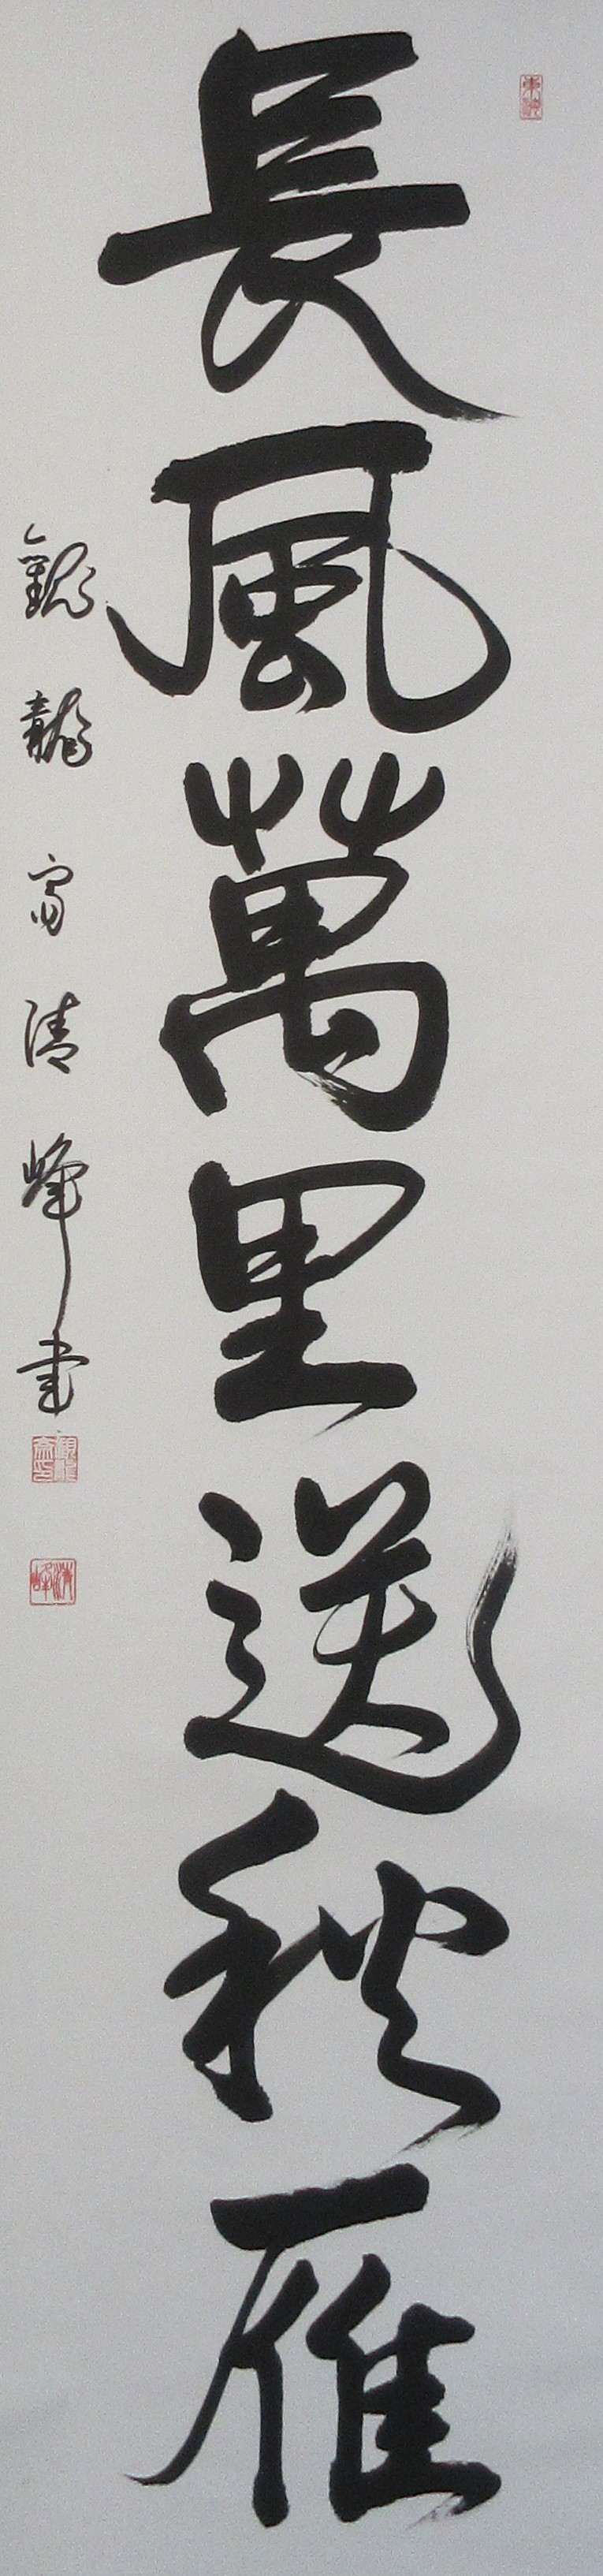 長風萬里送秋雁
觀龍斎清峰書